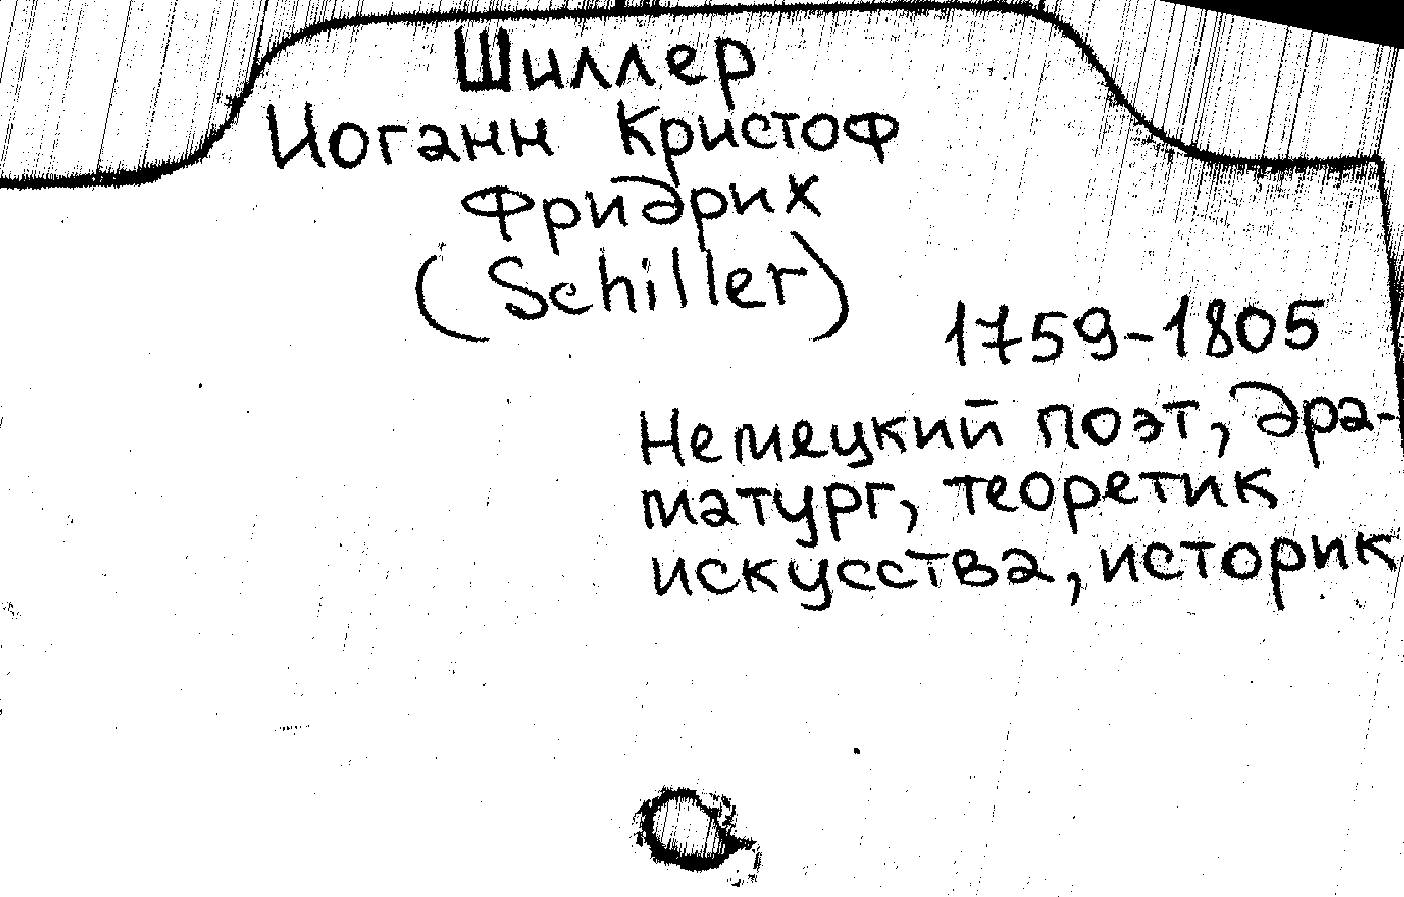 Шиллер
Иоганн Кристоф
Фридрих
(Schiller)
1759-1805
Немецкий поэт, дра-
матург, теоретик
искусства, историк